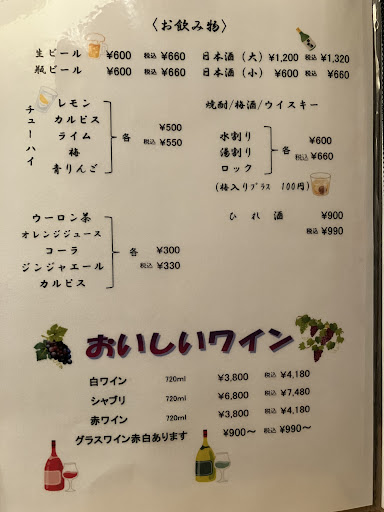 〈お飲み物〉
生ビール ¥600 税込 ¥660
瓶ビール ¥600 税込 ¥660
日本酒（大） ¥1,200 税込 ¥1,320
日本酒（小） ¥600 税込 ¥660
チューハイ
レモン
カルピス
ライム
梅
青りんご
各 ¥500
税込 ¥550
焼酎/梅酒/ウイスキー
水割り
湯割り
ロック
各 ¥600
税込 ¥660
(梅入りプラス 100円)
ひれ酒 ¥900
税込 ¥990
ウーロン茶
オレンジジュース
コーラ
ジンジャエール
カルピス
各 ¥300
税込 ¥330
おいしいワイン
白ワイン 720ml ¥3,800 税込 ¥4,180
シャブリ 720ml ¥6,800 税込 ¥7,480
赤ワイン 720ml ¥3,800 税込 ¥4,180
グラスワイン赤白あります ¥900～ 税込 ¥990～